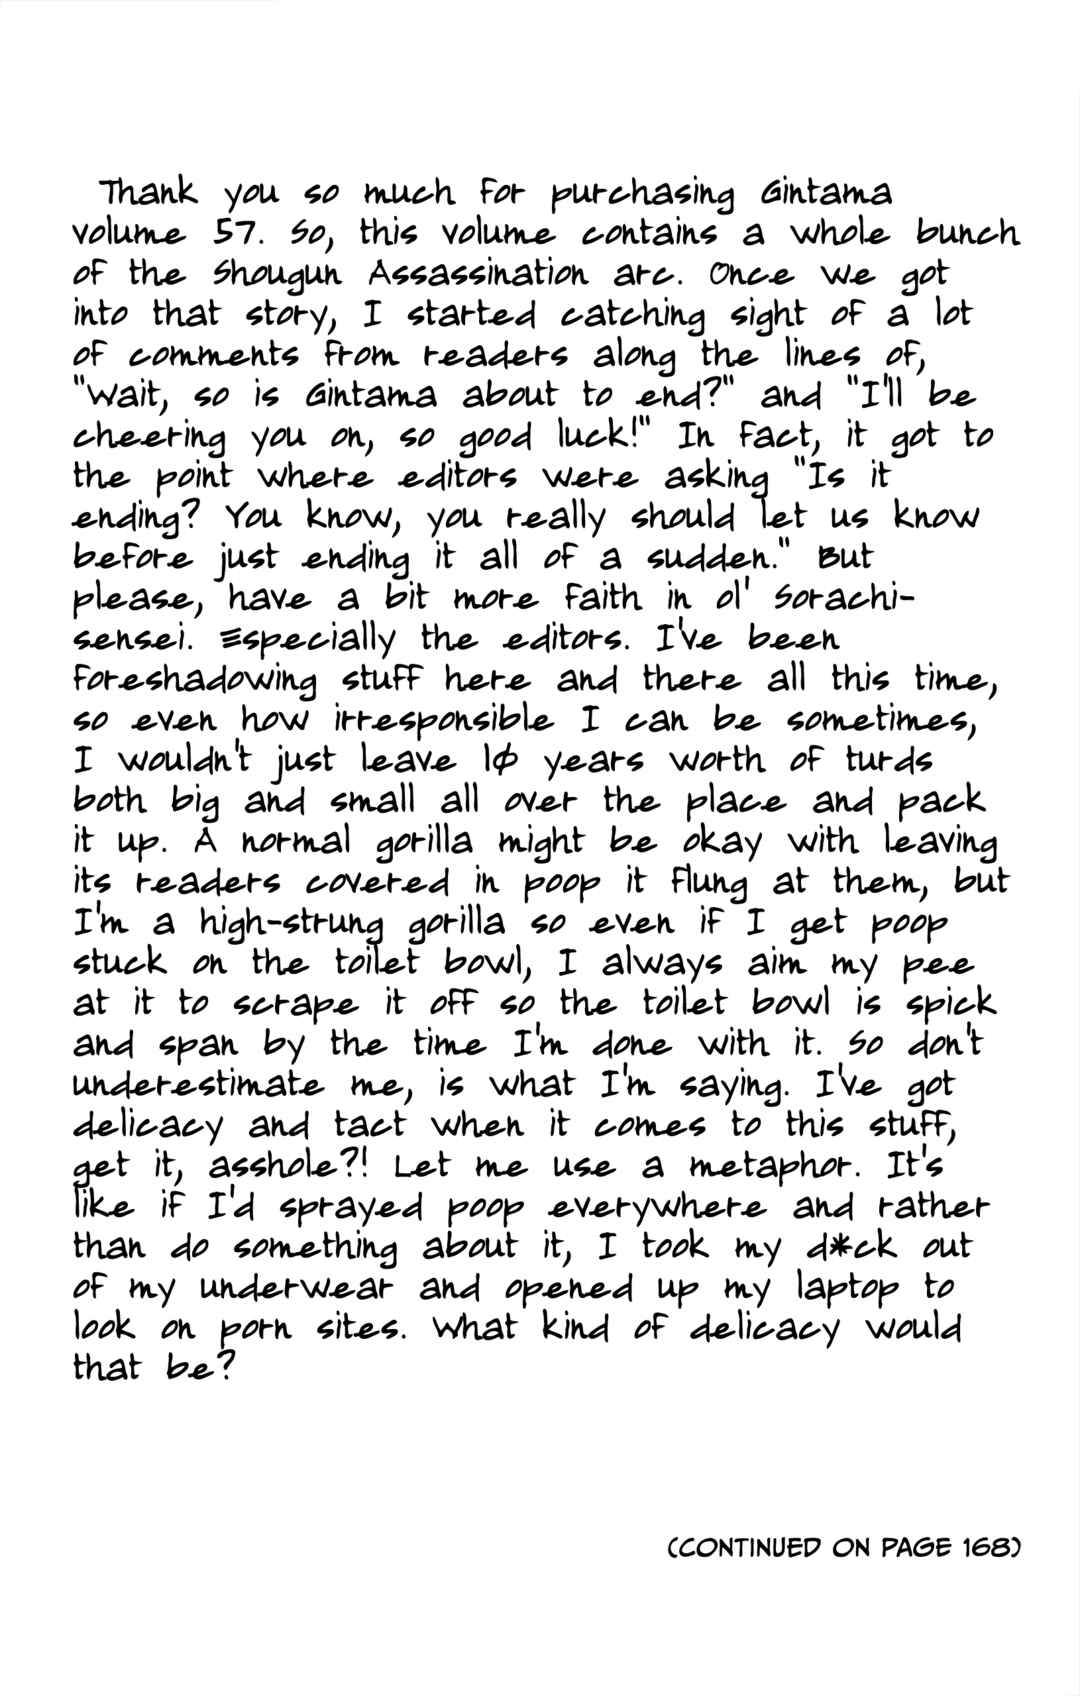 Thank you so much for purchasing Gintama
volume 57. So, this volume contains a whole bunch
of the Shougun Assassination arc. Once we got
into that story, I started catching sight of a lot
of comments from readers along the lines of,
"Wait, so is Gintama about to end?" and "I'll be
cheering you on, so good luck!" In fact, it got to
the point where editors were asking "Is it
ending? You know, you really should let us know
before just ending it all of a sudden." But
please, have a bit more faith in ol' Sorachi-
sensei. Especially the editors. I've been
foreshadowing stuff here and there all this time,
so even how irresponsible I can be sometimes,
I wouldn't just leave 10 years worth of turds
both big and small all over the place and pack
it up. A normal gorilla might be okay with leaving
its readers covered in poop it flung at them, but
I'm a high-strung gorilla so even if I get poop
stuck on the toilet bowl, I always aim my pee
at it to scrape it off so the toilet bowl is spick
and span by the time I'm done with it. So don't
underestimate me, is what I'm saying. I've got
delicacy and tact when it comes to this stuff,
get it, asshole?! Let me use a metaphor. It's
like if I'd sprayed poop everywhere and rather
than do something about it, I took my d*ck out
of my underwear and opened up my laptop to
look on porn sites. What kind of delicacy would
that be?
(CONTINUED ON PAGE 168)